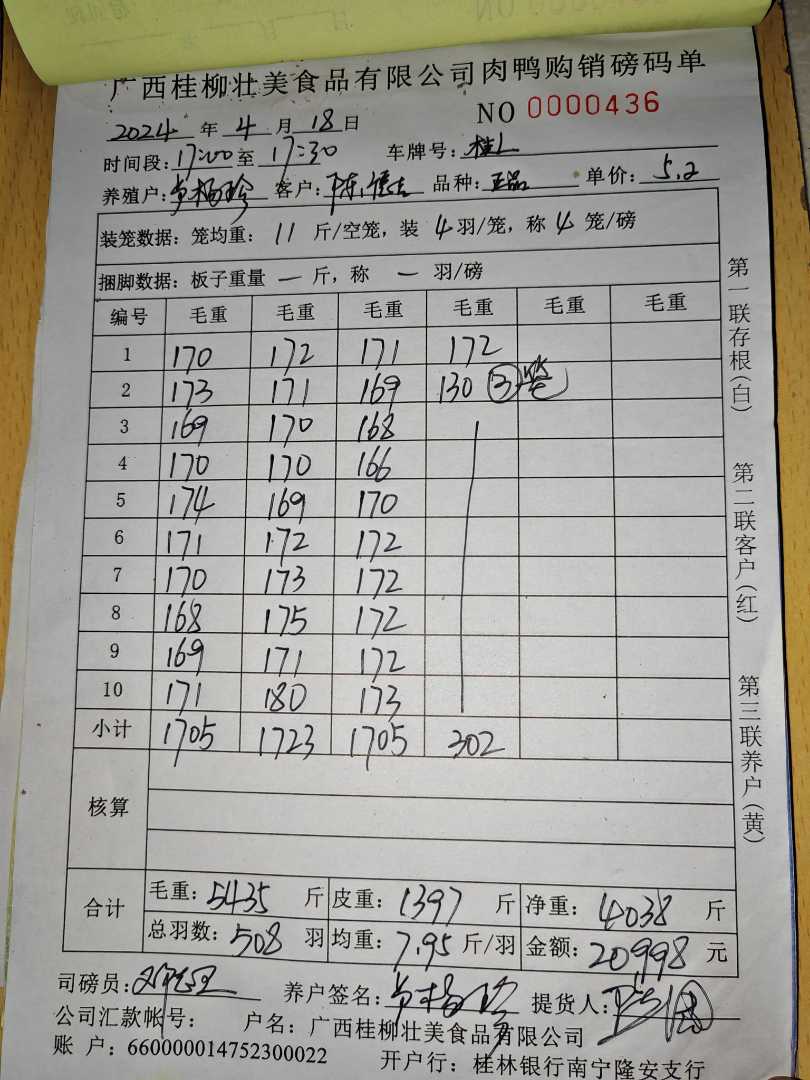 广西桂柳壮美食品有限公司肉鸭购销磅码单
NO 0000436
2024 年 4 月 18 日
时间段: 17:00 至 17:30 车牌号: 桂L
养殖户: 客户: 陈 品种: 正品 单价: 5.2
装笼数据: 笼均重: 11 斤/空笼, 装 4 羽/笼, 称 4 笼/磅
捆脚数据: 板子重量 — 斤, 称 — 羽/磅
编号 毛重 毛重 毛重 毛重 毛重 毛重
1 170 172 171 172
2 173 171 169 130 ③笼
3 169 170 168
4 170 170 166
5 174 169 170
6 171 172 172
7 170 173 172
8 168 175 172
9 169 171 172
10 171 180 173
小计 1705 1723 1705 302
核算
合计 毛重: 5435 斤 皮重: 1397 斤 净重: 4038 斤
总羽数: 508 羽 均重: 7.95 斤/羽 金额: 20998 元
司磅员: 养户签名: 提货人:
公司汇款帐号: 户名: 广西桂柳壮美食品有限公司
账 户: 660000014752300022 开户行: 桂林银行南宁隆安支行
第一联存根(白)
第二联客户(红)
第三联养户(黄)